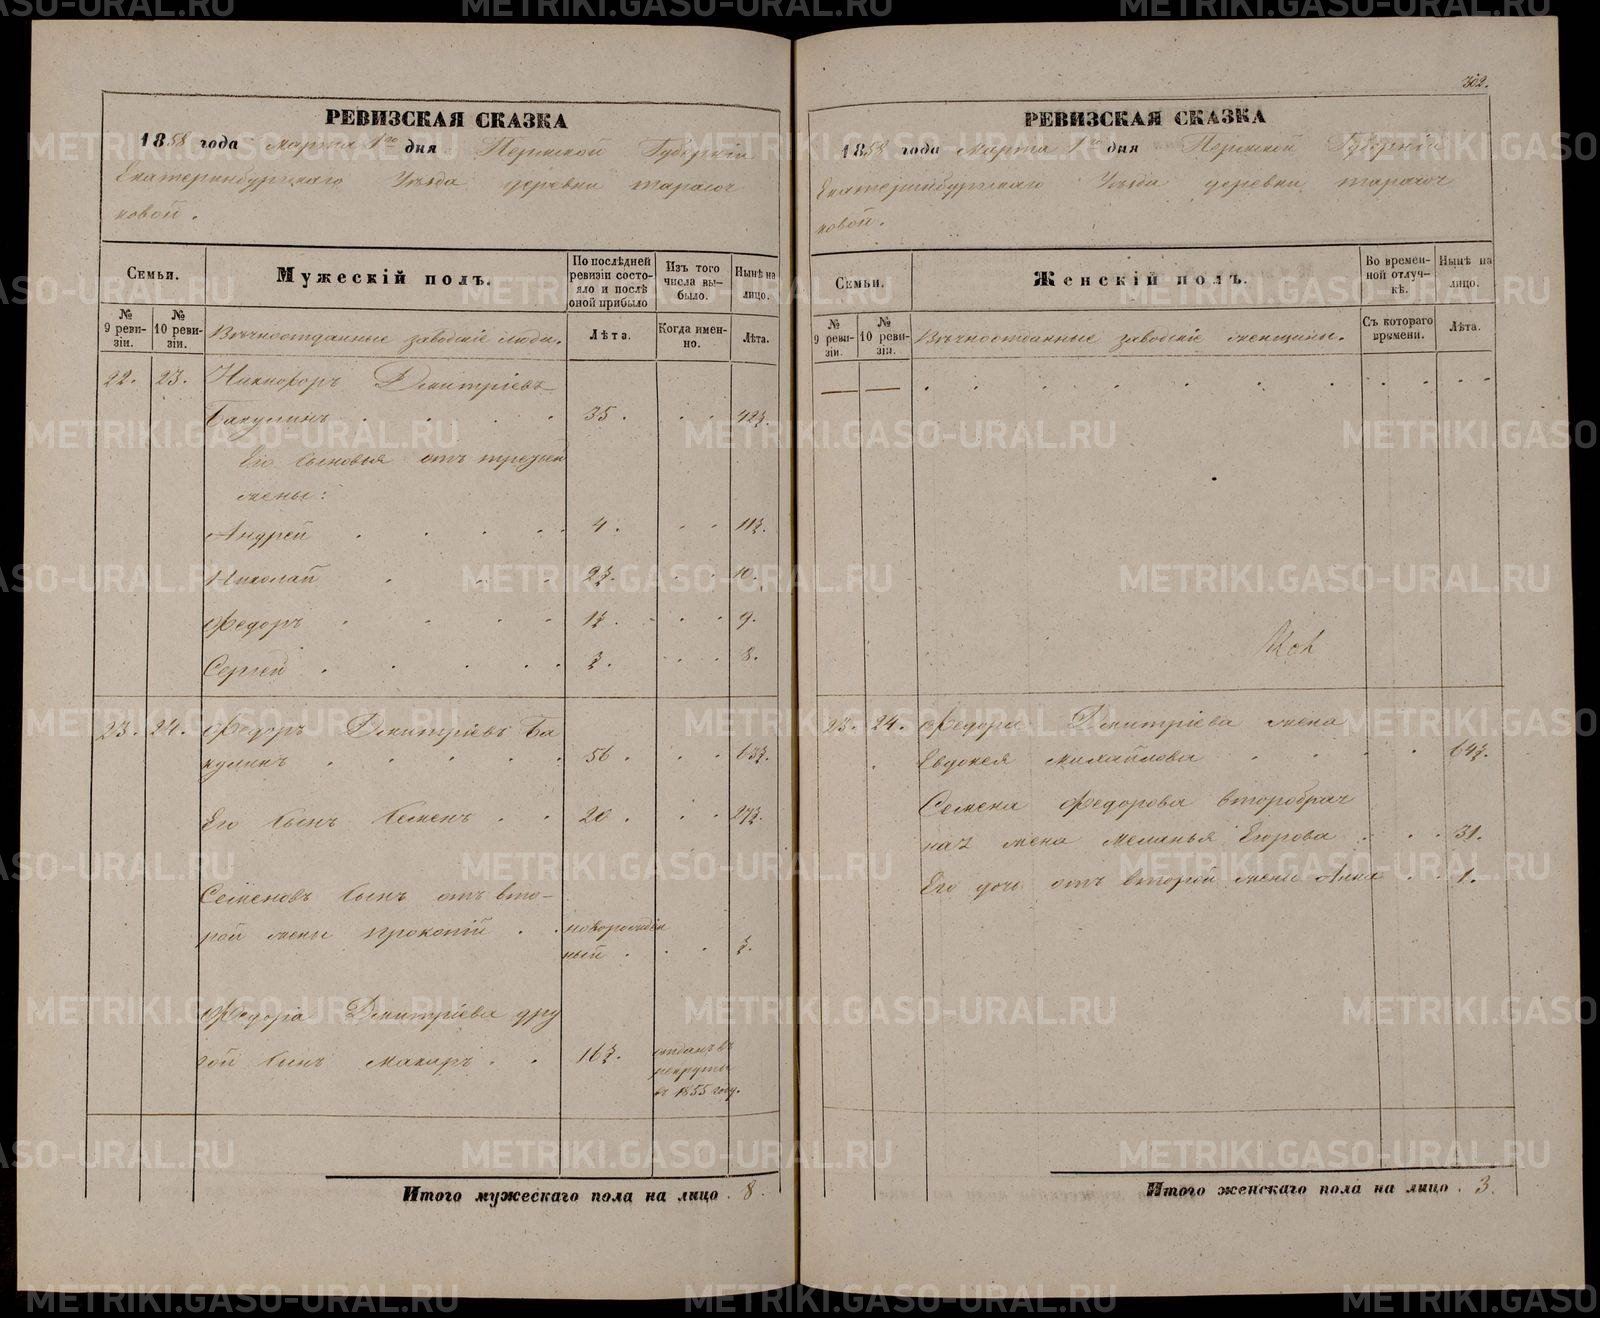 302.
РЕВИЗСКАЯ СКАЗКА
1858 года Марта 1го дня Пермской Губерніи
Екатеринбургскаго Уѣзда деревни Тарасо
ковой.
Семьи.
Мужескій полъ.
По послѣдней ревизіи состояло и послѣ оной прибыло
Изъ того числа выбыло.
Нынѣ на лицо.
№ 9 ревизіи.
№ 10 ревизіи.
Вѣчноотданные заводскіе люди.
Лѣта.
Когда именно.
Лѣта.
22. 23. Никифоръ Дмитріевъ
Бакулинъ . . . . 35 . . . 42½.
Его сыновья отъ
жены:
Андрей . . . . 4 . . . 11½.
Николай . . . 2½. . . 10.
Федоръ . . . . 1½ . . . 9.
Сергей . . . . ½. . . . 8.
23. 24. Федоръ Дмитріевъ Ба
кулинъ . . . . . 56 . . . 63½.
Его сынъ Семенъ . . 20 . . . 27½.
Семеновъ сынъ отъ вто-
рой жены Прокопій . . новорожден
ный . . . ½.
Федора Дмитріева дру
гой сынъ Макаръ . . 16½. отданъ въ
рекруты
въ 1855 году.
Итого мужескаго пола на лицо . 8.
РЕВИЗСКАЯ СКАЗКА
1858 года Марта 1го дня Пермской Губерніи
Екатеринбургскаго Уѣзда деревни Тарасо
ковой.
Семьи.
Женскій полъ.
Во временной отлучкѣ.
Нынѣ на лицо.
№ 9 ревизіи.
№ 10 ревизіи.
Вѣчноотданные заводскіе женщины.
Съ котораго времени.
Лѣта.
23. 24. Федора Дмитріева жена
Евдокея Михайлова . . . . 64½.
Семена Федорова второбрач
ная жена Меланья Егорова . . . 31.
Его дочь отъ второй жены Анна . . 1.
Итого женскаго пола на лицо . 3.
METRIKI.GASO-URAL.RU